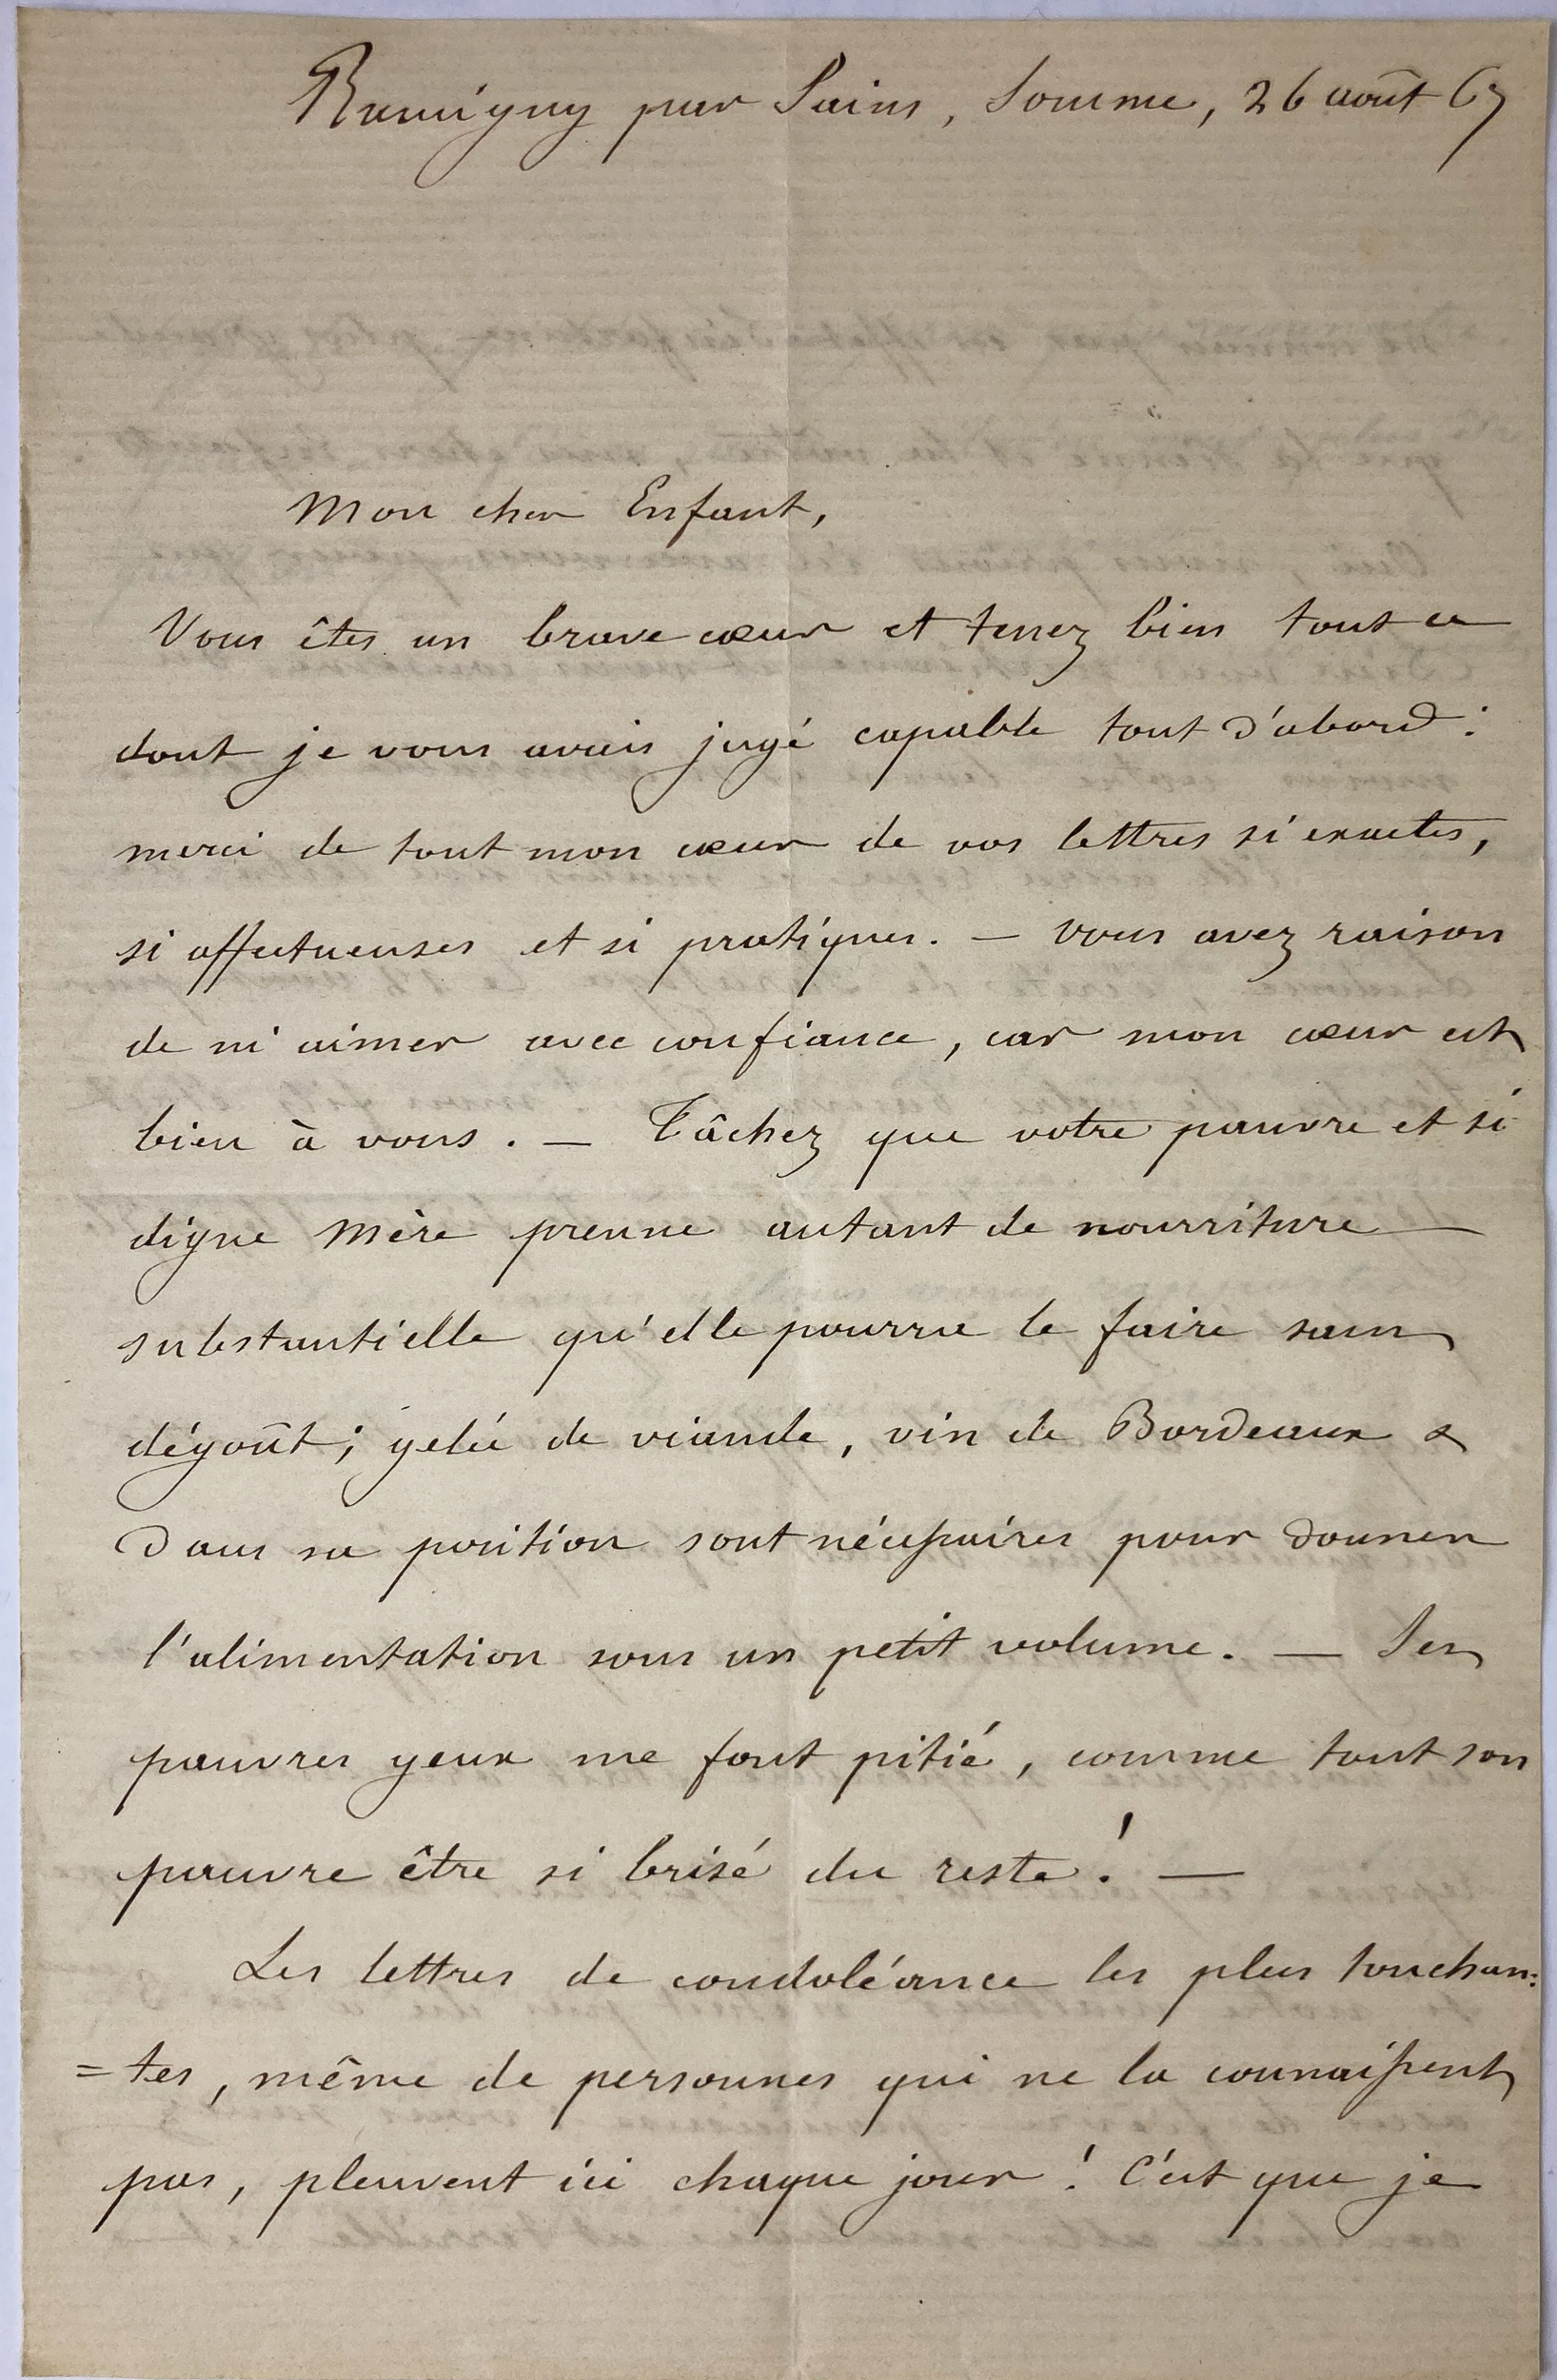 Rumigny par Sains, Somme, 26 août 67
Mon cher Enfant,
Vous êtes un brave cœur et tenez bien tout ce
dont je vous avais jugé capable tout d'abord :
merci de tout mon cœur de vos lettres si exactes,
si affectueuses et si pratiques. — Vous avez raison
de m'aimer avec confiance, car mon cœur est
bien à vous. — Tâchez que votre pauvre et si
digne Mère prenne autant de nourriture
substantielle qu'elle pourra le faire sans
dégoût ; gelée de viande, vin de Bordeaux &
dans sa position sont nécessaires pour donner
l'alimentation sous un petit volume. — Ses
pauvres yeux me font pitié, comme tout son
pauvre être si brisé du reste ! —
Les lettres de condoléance les plus touchan=
=tes, même de personnes qui ne la connaissent
pas, pleuvent ici chaque jour ! C'est que je